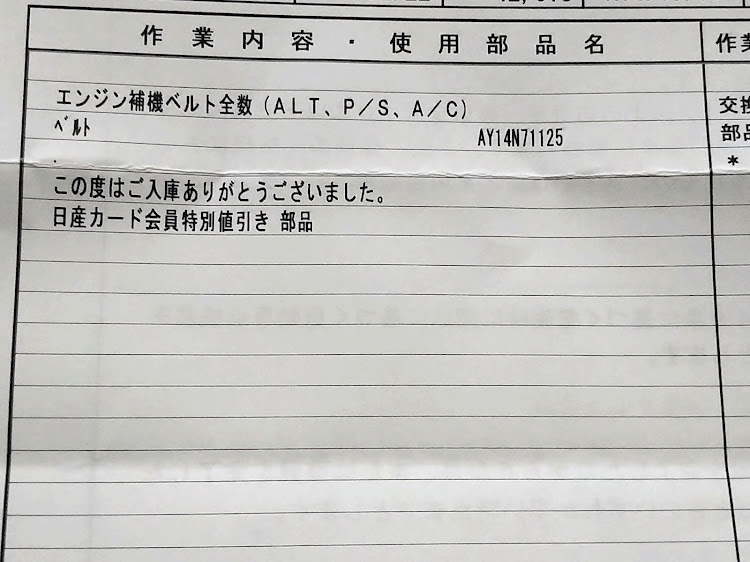 作業内容・使用部品名 作業
エンジン補機ベルト全数(ALT、P/S、A/C) 交換
ﾍﾞﾙﾄ AY14N71125 部品
. *
この度はご入庫ありがとうございました。
日産カード会員特別値引き 部品